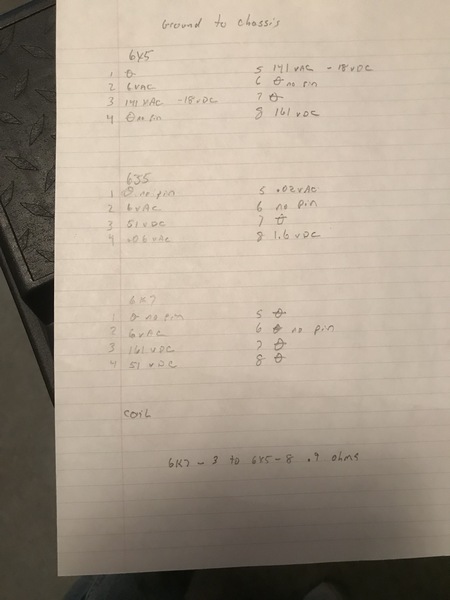 Ground to chassis
6X5
1 0 5 141 VAC - 18 VDC
2 6 VAC 6 0 no pin
3 141 VAC - 18 VDC 7 0
4 0 no pin 8 161 VDC
6J5
1 0 no pin 5 .02 VAC
2 6 VAC 6 no pin
3 51 VDC 7 0
4 .06 VAC 8 1.6 VDC
6K7
1 0 no pin 5 0
2 6 VAC 6 0 no pin
3 161 VDC 7 0
4 51 VDC 8 0
coil
6K7 - 3 to 6X5 - 8 .9 ohms